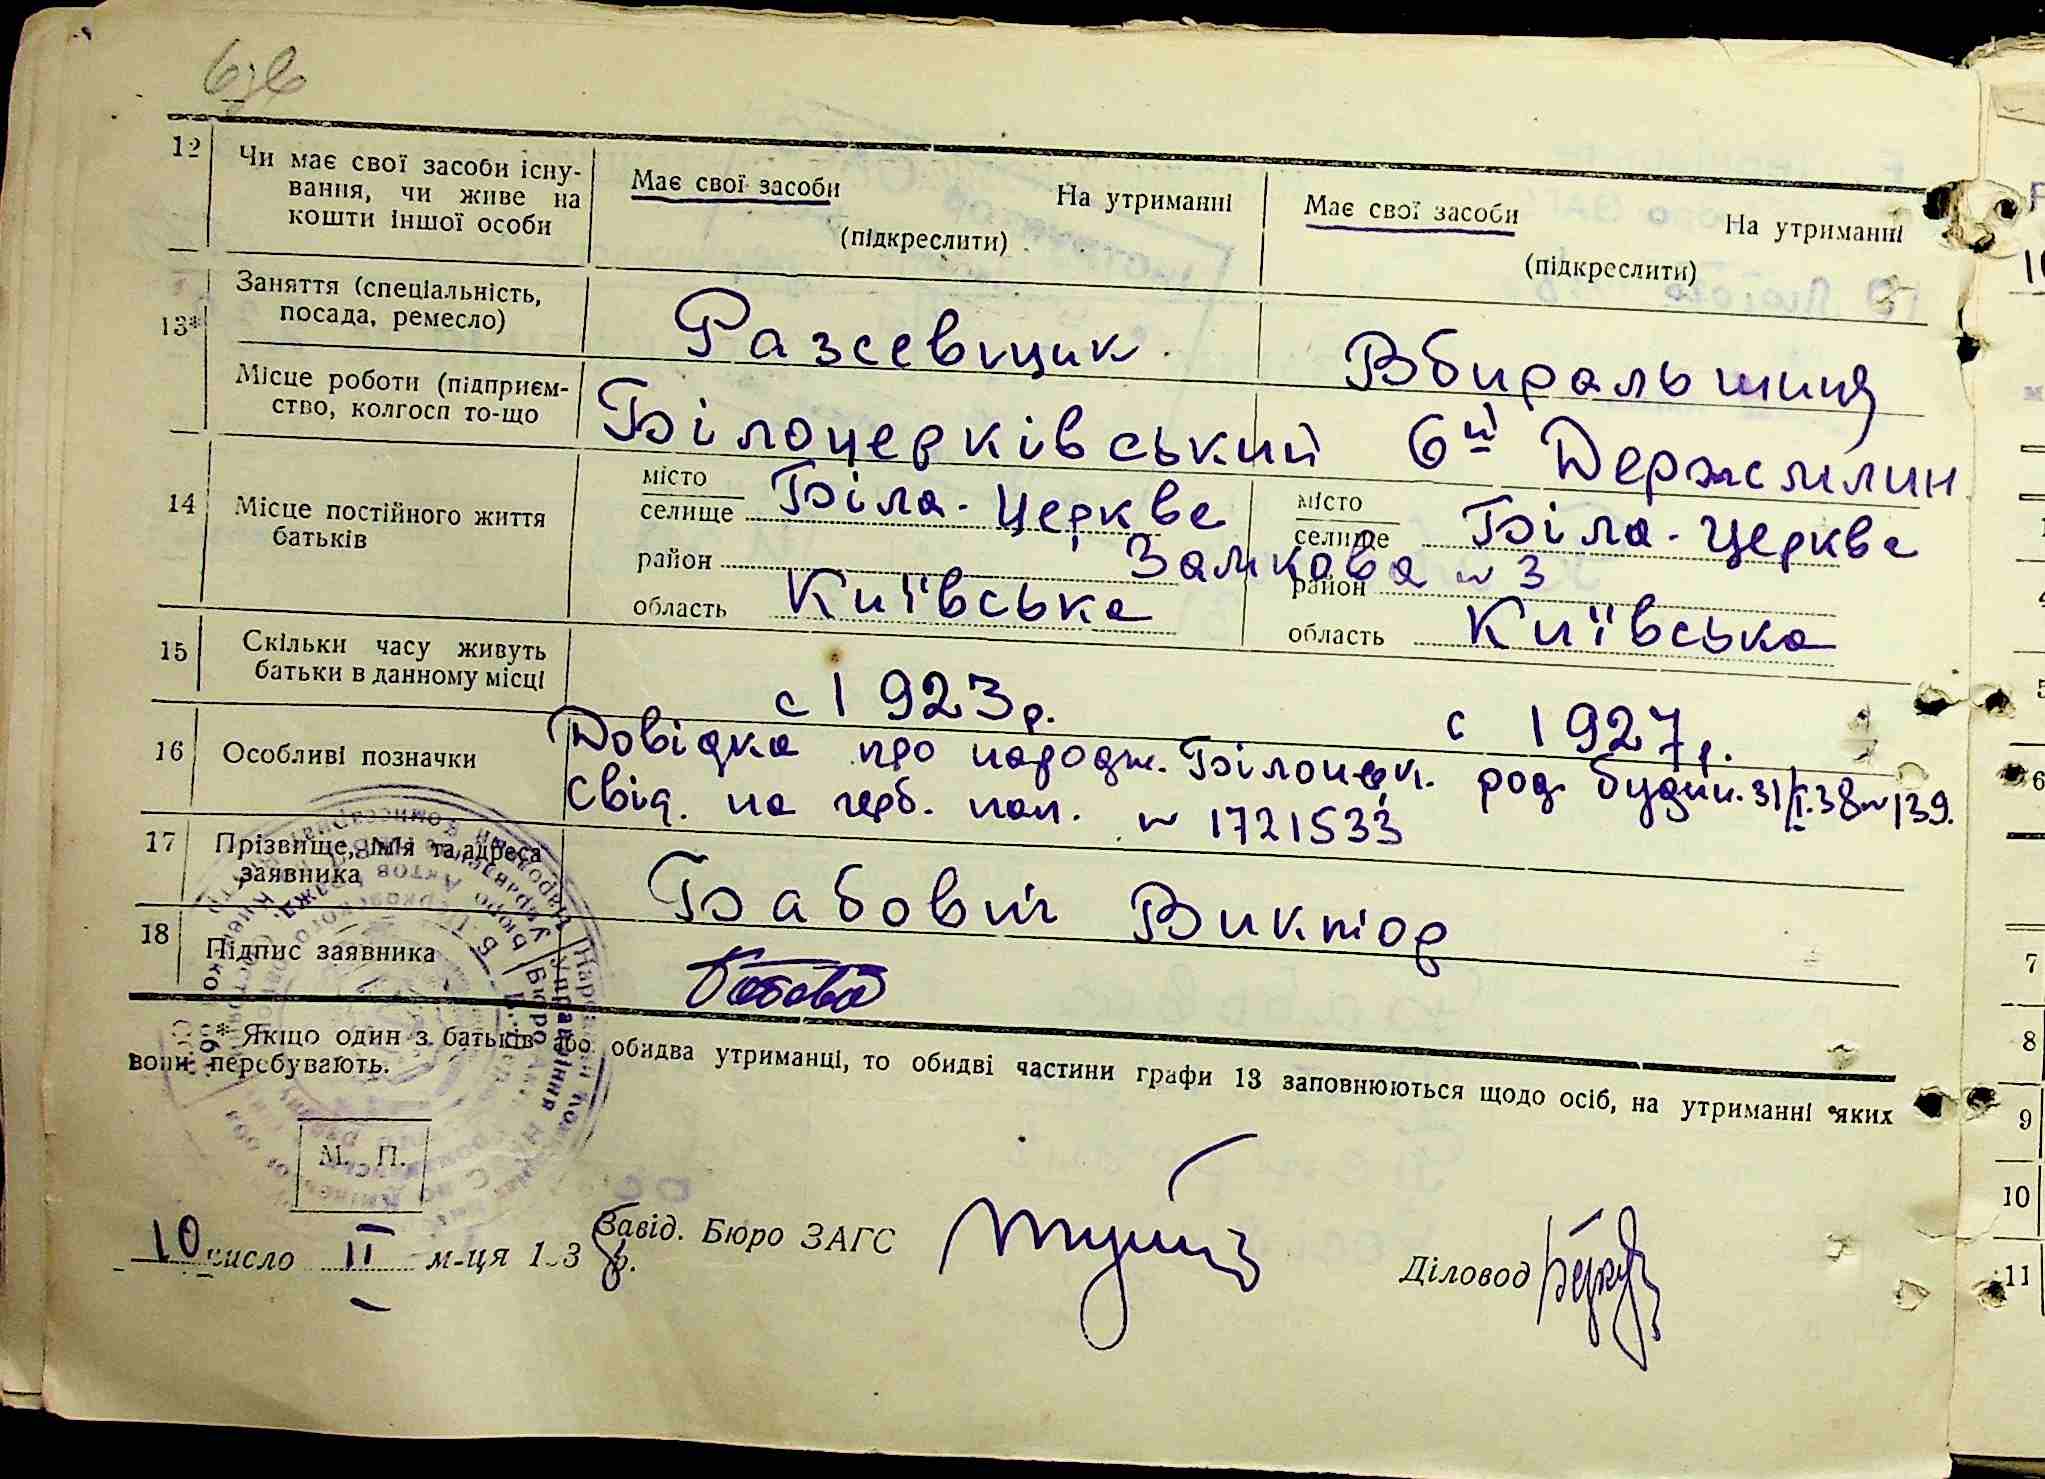 12 Чи має свої засоби існу-
вання, чи живе на
кошти іншої особи
Має свої засоби На утриманні
(підкреслити)
Має свої засоби На утриманні
(підкреслити)
13* Заняття (спеціальність,
посада, ремесло)
Разсевщик Вбиральшиця
Місце роботи (підприєм-
ство, колгосп то-що
Білоцерківський 6й Держмлин
14 Місце постійного життя
батьків
місто
селище Біла-Церква
район Замкова № 3
область Київська
місто
селище Біла-Церква
район
область Київська
15 Скільки часу живуть
батьки в данному місці
с 1923р. с 1927р.
16 Особливі позначки
Довідка про народж. Білоцерк. род. будин. 31/I.38 № 139.
Свід. на герб. пап. № 1721533
17 Прізвище, імя та адреса
заявника
Бабович Виктор
18 Підпис заявника
* Якщо один з батьків або обидва утриманці, то обидві частини графи 13 заповнюються щодо осіб, на утриманні яких
вони перебувають.
М. П.
10 число II м-ця 193 8 р.
Завід. Бюро ЗАГС
Діловод
6
7
8
9
10
11